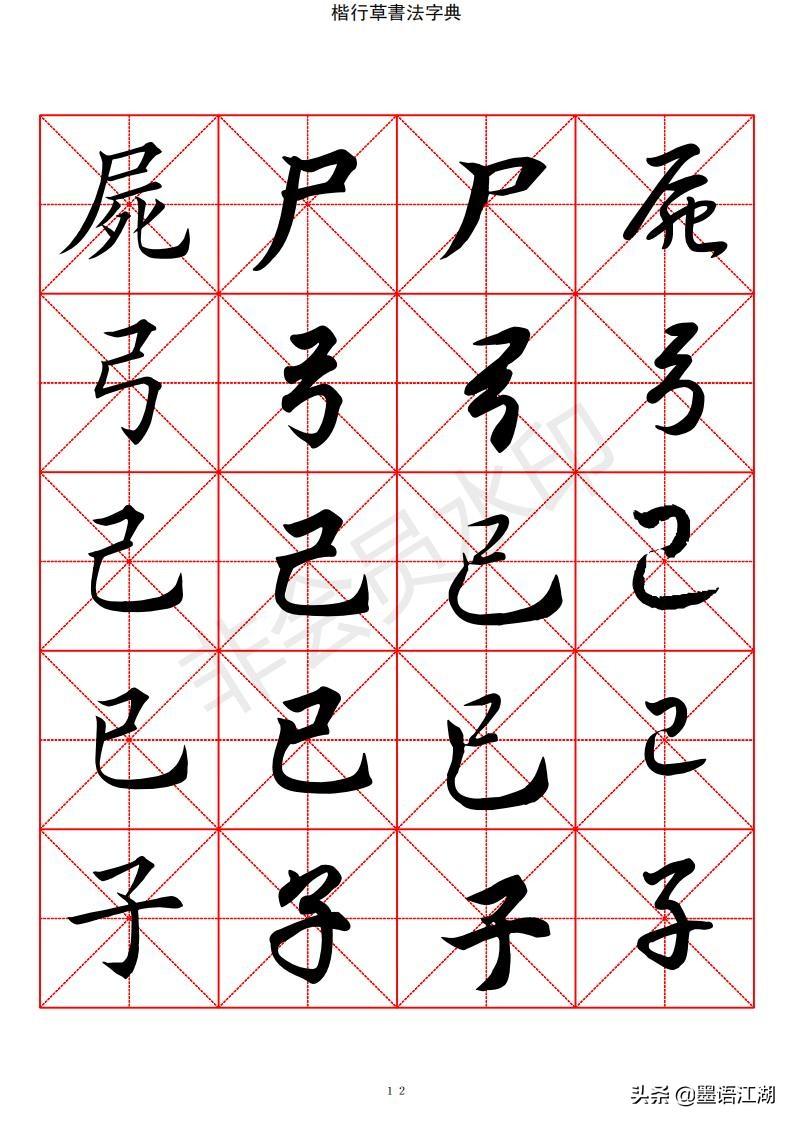 楷行草書法字典
屍 尸 尸 屍
弓 弓 弓 弓
己 己 己 己
已 已 已 已
子 子 子 子
非会员水印
12
头条 @墨语江湖